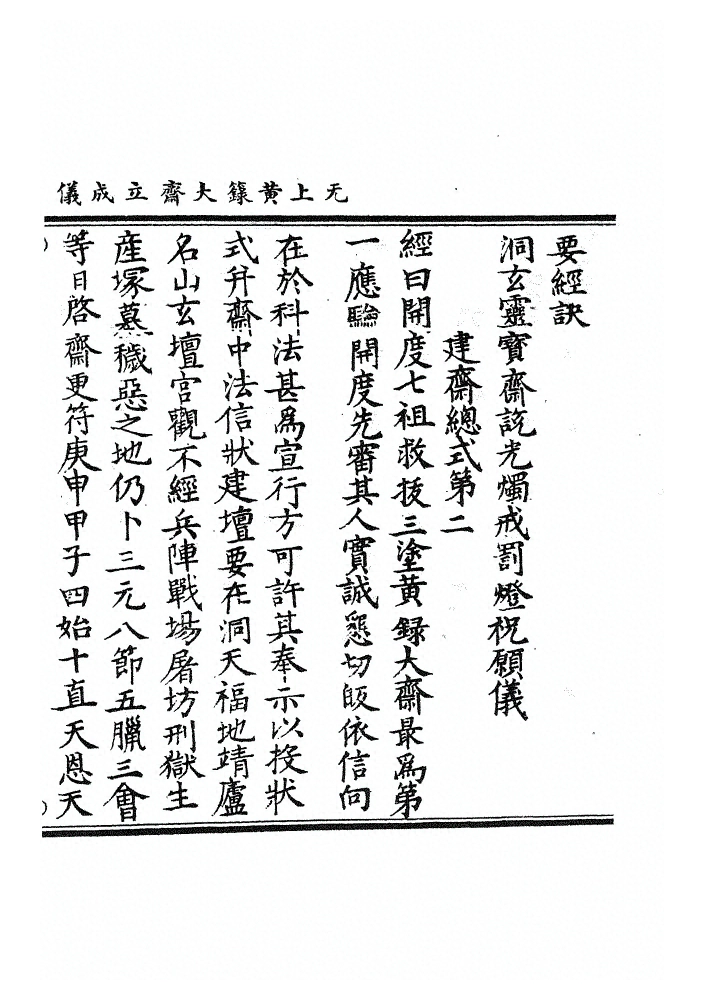 无上黃籙大齋立成儀
要經訣
洞玄靈寶齋說光燭戒罰燈祝願儀
建齋總式第二
經曰開度七祖救拔三塗黃録大齋最爲第
一應驗開度先審其人實誠懇切皈依信向
在於科法甚爲宣行方可許其奉示以投狀
式并齋中法信狀建壇要在洞天福地靖廬
名山玄壇宫觀不經兵陣戰場屠坊刑獄生
産塚墓穢惡之地仍卜三元八節五臘三會
等日啓齋更符庚申甲子四始十直天恩天